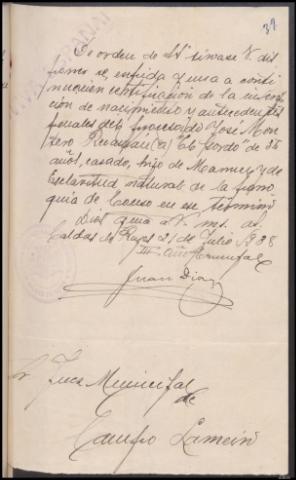 39
¡VIVA ESPAÑA!
De orden de S.Sª sirvase V. dis
poner se expida y una a conti
nuación certificación de la inscrip
ción de nacimiento y antecedentes
penales del procesado José Mon
tero (a) "El Gordo" de 35
años, casado, hijo de Manuel y de
Esclavitud natural de la parro
quia de en ese término
Dios guíe a V. ms. as.
Caldas de Reyes 21 de Julio 1938
III Año Triunfal
Juan Diaz
Sr Juez Municipal
de
Campo Lameiro